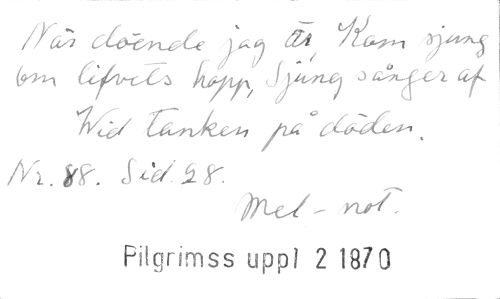 När döende jag är, Kom sjung
om lifvets hopp, Sjung sånger af
Wid tanken på döden.
Nr. 88. Sid. 28.
Mel-not.
Pilgrimss uppl 2 1870